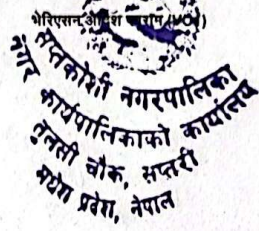 भेरिएसन आदेश फाराम (VO1)
सप्तकोशी नगरपालिका
नगर कार्यपालिकाको कार्यालय
तुलसी चौक, सप्तरी
मधेश प्रदेश, नेपाल